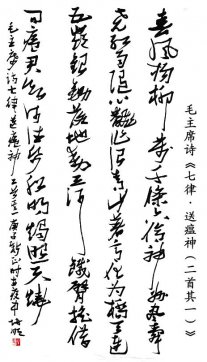 毛主席诗《七律·送瘟神（二首其一）》
春风杨柳万千条六亿神州尽舜
尧红雨随心翻作浪青山着意化为桥天连
五岭银锄落地动三河铁臂摇借
问瘟君欲何往纸船明烛照天烧
毛主席诗七律送瘟神 庚子新正时